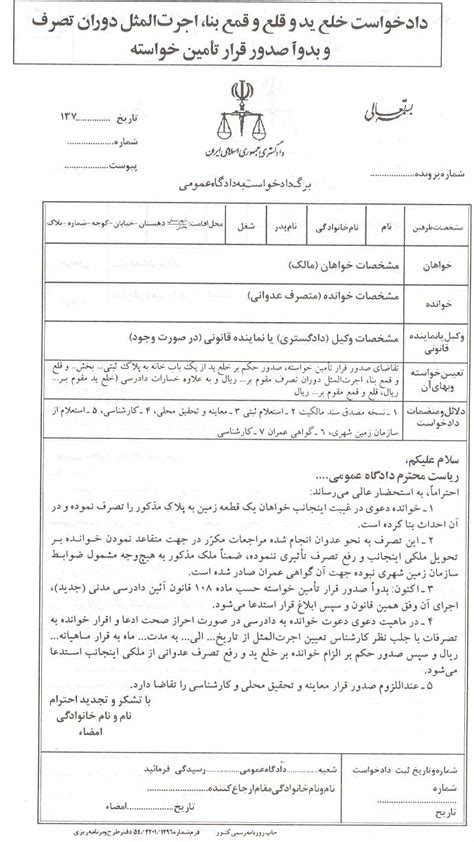 دادخواست خلع ید و قلع و قمع بنا، اجرت‌المثل دوران تصرف
و بدواً صدور قرار تأمین خواسته
بسمه‌تعالی
دادگستری جمهوری اسلامی ایران
تاریخ ..............۱۳۷
شماره.....................
پیوست.....................
شماره پرونده....................
برگ دادخواست به دادگاه عمومی
مشخصات طرفین
نام
نام‌خانوادگی
نام‌پدر
شغل
محل‌اقامت: دهستان-خیابان-کوچه-شماره-پلاک
خواهان
مشخصات خواهان (مالک)
خوانده
مشخصات خوانده (متصرف عدوانی)
وکیل یا نماینده
قانونی
مشخصات وکیل (دادگستری) یا نماینده قانونی (در صورت وجود)
تعیین خواسته
وبهای آن
تقاضای صدور قرار تأمین خواسته، صدور حکم بر خلع ید از یک باب خانه به پلاک ثبتی... بخش... و قلع
و قمع بنا، اجرت‌المثل دوران تصرف مقوم بر... ریال و به علاوه خسارات دادرسی (خلع ید مقوم بر...
ریال، قلع و قمع مقوم بر... ریال)
دلائل و منضمات
دادخواست
۱ـ نسخه مصدق سند مالکیت ۲ـ استعلام ثبتی ۳ـ معاینه و تحقیق محلی، ۴ـ کارشناسی، ۵ـ استعلام از
سازمان زمین شهری، ۶ـ گواهی عمران ۷ـ کارشناسی
سلام علیکم،
ریاست محترم دادگاه عمومی....
احتراماً، به استحضار عالی می‌رساند:
۱ـ خوانده دعوی در غیبت اینجانب خواهان یک قطعه زمین به پلاک مذکور را تصرف نموده و در
آن احداث بنا کرده است.
۲ـ این تصرف به نحو عدوان انجام شده مراجعات مکرّر در جهت متقاعد نمودن خوانده بر
تحویل ملکی اینجانب و رفع تصرف تأثیری ننموده، ضمناً ملک مذکور به هیچ‌وجه مشمول ضوابط
سازمان زمین شهری نبوده جهت آن گواهی عمران صادر شده است.
۳ـ اکنون: بدواً صدور قرار تأمین خواسته حسب ماده ۱۰۸ قانون آئین دادرسی مدنی (جدید)،
اجرای آن وفق همین قانون و سپس ابلاغ قرار استدعا می‌شود.
۴ـ در ماهیت دعوی دعوت خوانده به دادرسی در صورت احراز صحت ادعا و اقرار خوانده به
تصرفات با جلب نظر کارشناس تعیین اجرت‌المثل از تاریخ... الی... به مدت... ماه به قرار ماهیانه...
ریال و سپس صدور حکم بر الزام خوانده بر خلع ید و رفع تصرف عدوانی از ملکی اینجانب استدعا
می‌شود.
۵ـ عنداللزوم صدور قرار معاینه و تحقیق محلی و کارشناسی را تقاضا دارد.
با تشکر و تجدید احترام
نام و نام خانوادگی
امضاء
شماره و تاریخ ثبت دادخواست
شماره
تاریخ
شعبه..............دادگاه عمومی..............رسیدگی فرمائید
نام و نام خانوادگی مقام ارجاع کننده....................
تاریخ..............امضاء
چاپ روزنامه رسمی کشور
فرم شماره ۵۴/۲۲۰۱/۱۲۹۶ دفتر طرح و برنامه ریزی